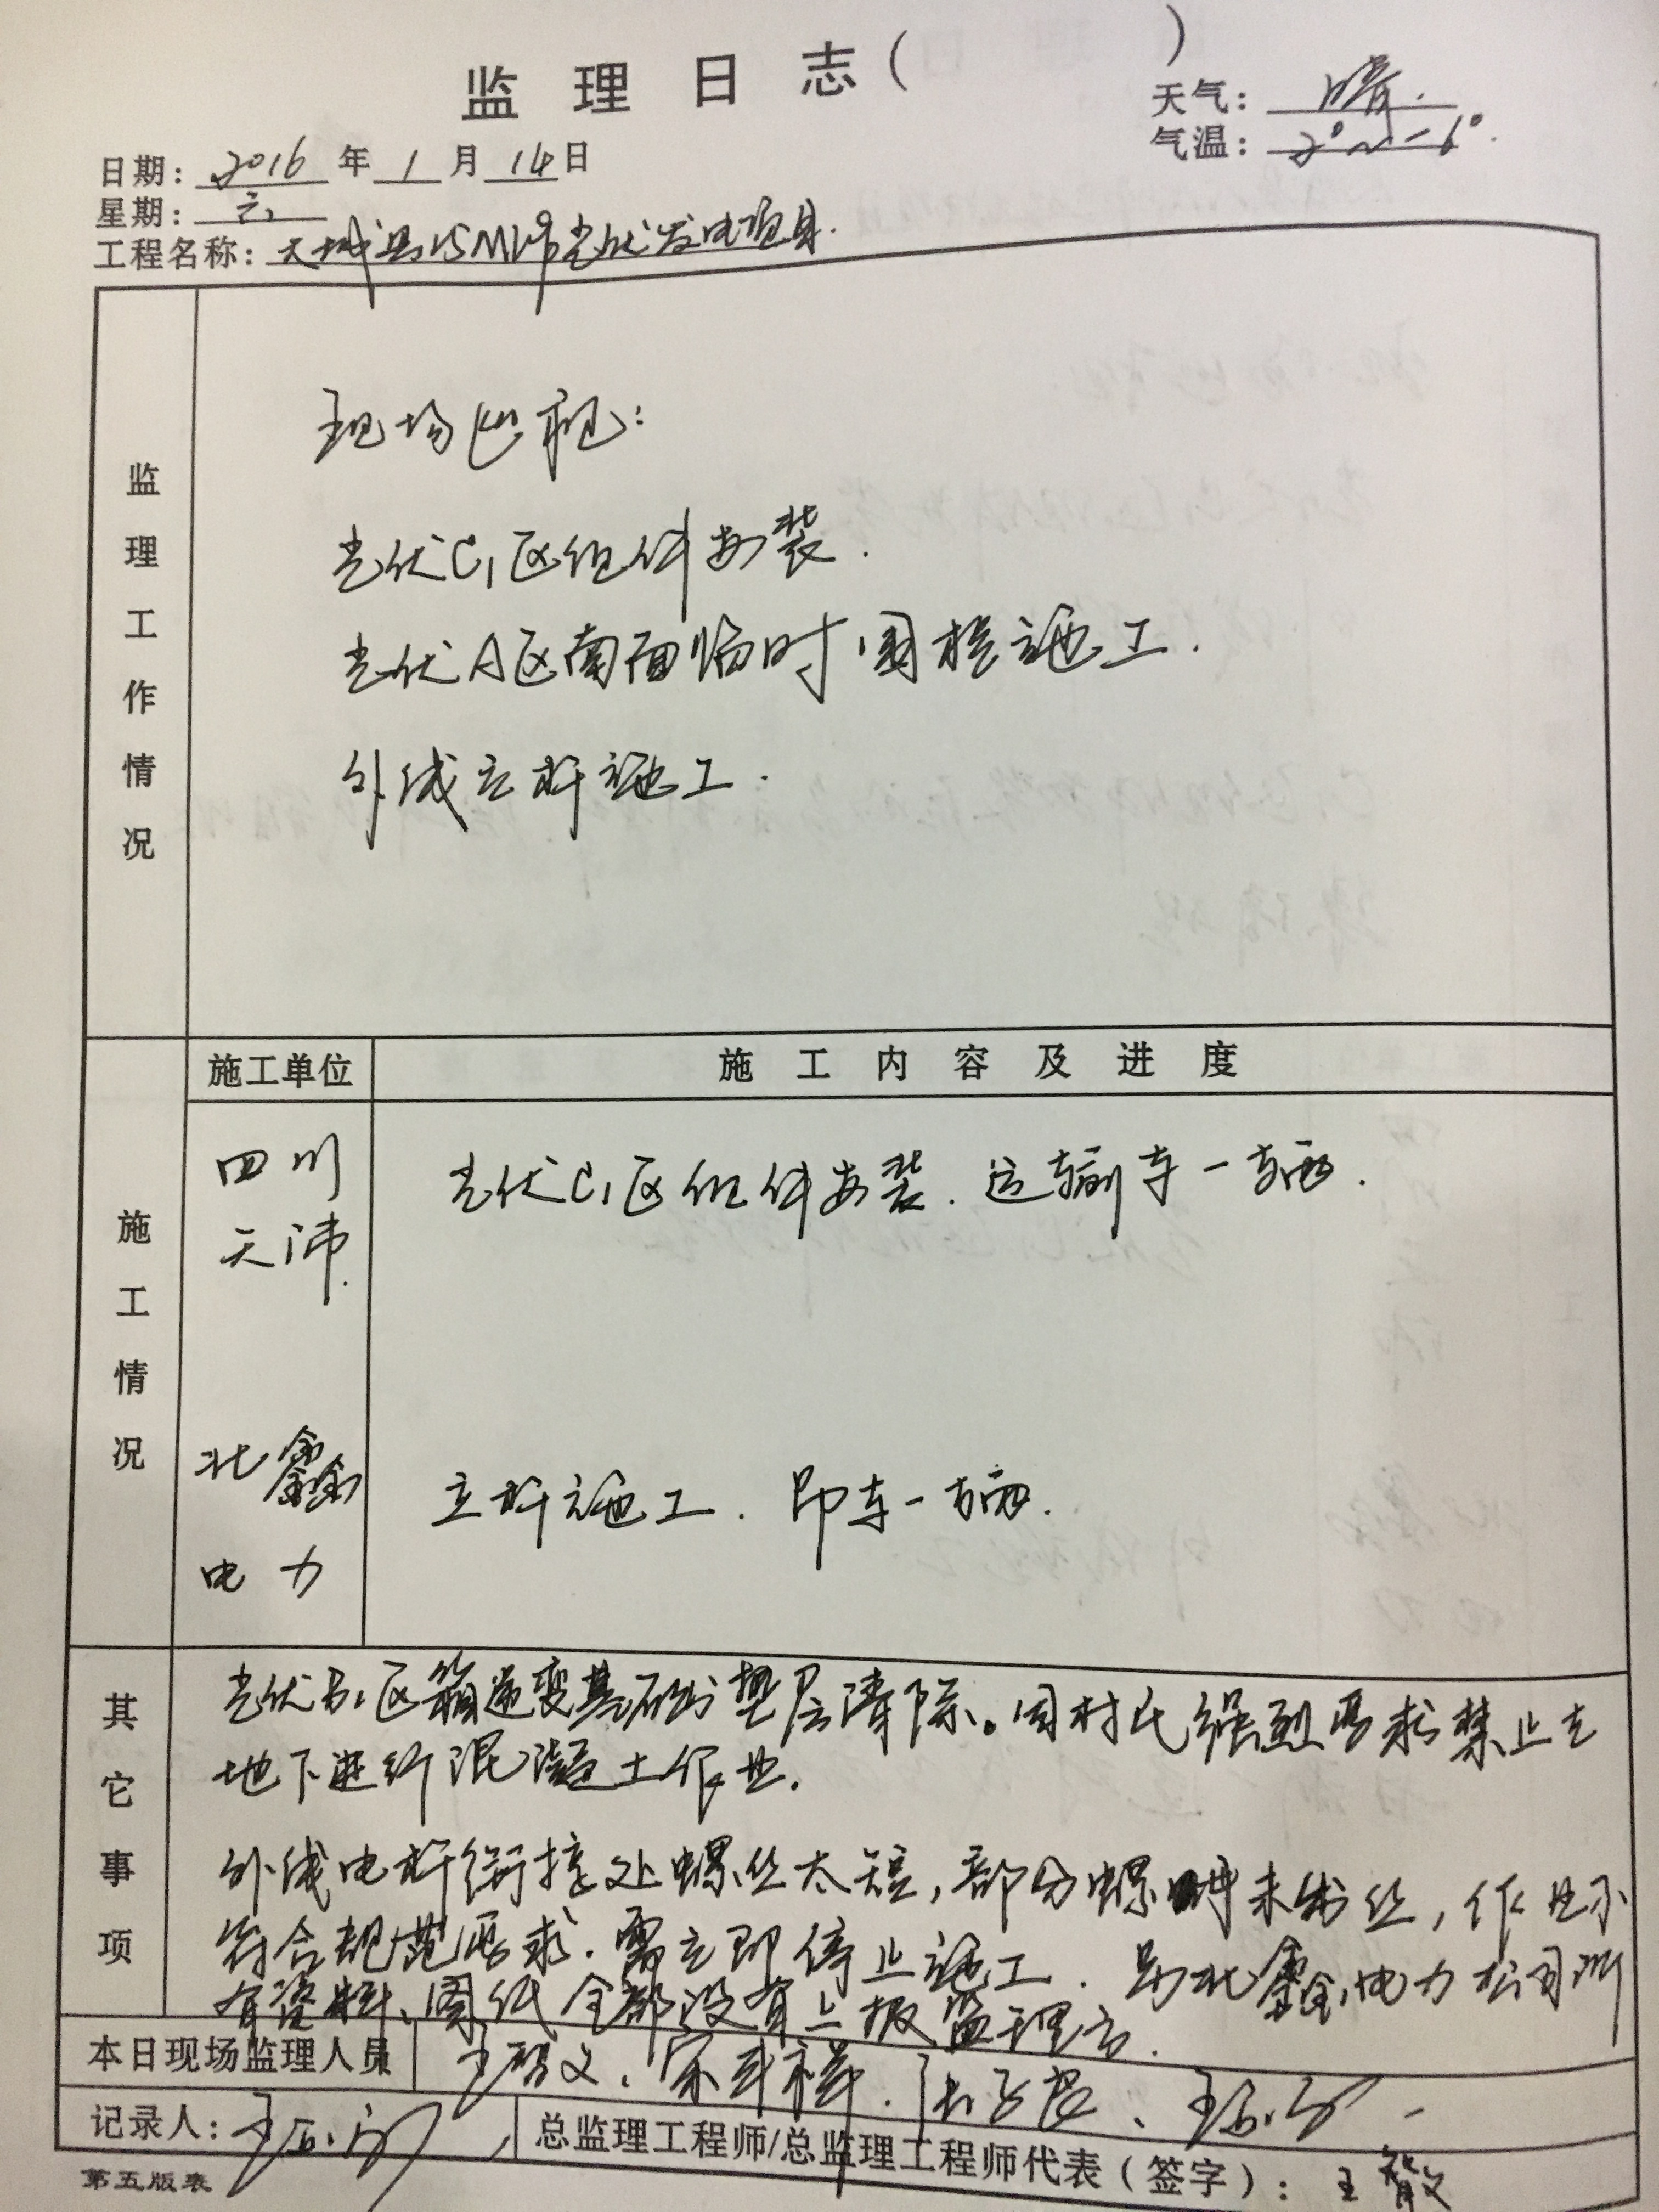 监理日志（ ）
天气：晴.
气温：2°~-6°.
日期：2016年1月14日
星期：
工程名称：大城县15MWp光伏发电项目.
监理工作情况
现场巡视：
光伏C1区组件安装.
光伏A区南面临时围栏施工.
外线立杆施工.
施工情况
施工单位
施工内容及进度
四川
天沛.
光伏C1区组件安装.运输车一辆.
北鑫
电力
立杆施工. 吊车一辆.
其它事项
光伏B1区箱逆变基础垫层清除。因村民强烈要求禁止在
地下进行混凝土作业.
外线电杆衔接处螺丝太短，部分螺母未满丝，作业不
符合规范要求.需立即停止施工. 另北鑫电力公司所
有资料、图纸全部没有上报监理方.
本日现场监理人员
记录人：
总监理工程师/总监理工程师代表（签字）：王
第五版表